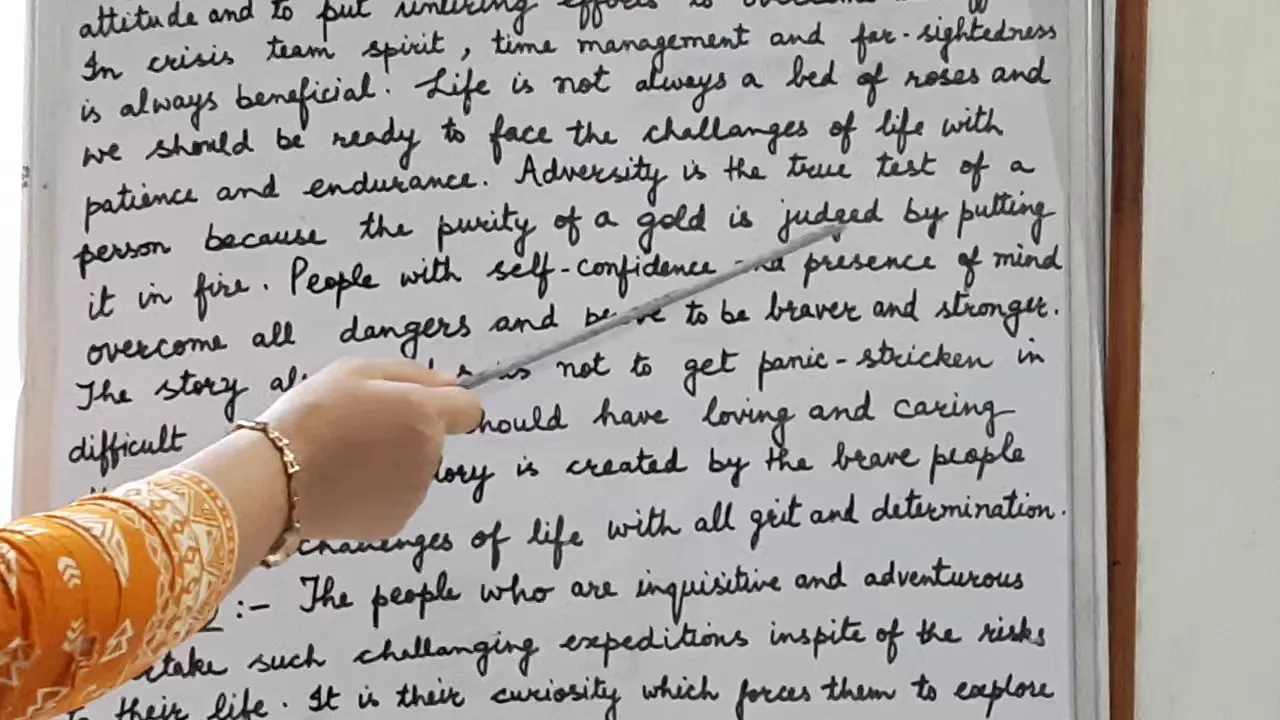 attitude and to put untiring efforts to
In crisis team spirit, time management and far-sightedness
is always beneficial. Life is not always a bed of roses and
we should be ready to face the challanges of life with
patience and endurance. Adversity is the true test of a
person because the purity of a gold is judged by putting
it in fire. People with self-confidence presence of mind
overcome all dangers and to be braver and stronger.
The story is not to get panic-stricken in
difficult should have loving and caring
is created by the brave people
challenges of life with all grit and determination.
:- The people who are inquisitive and adventurous
such challanging expeditions inspite of the risks
to their life. It is their curiosity which forces them to explore